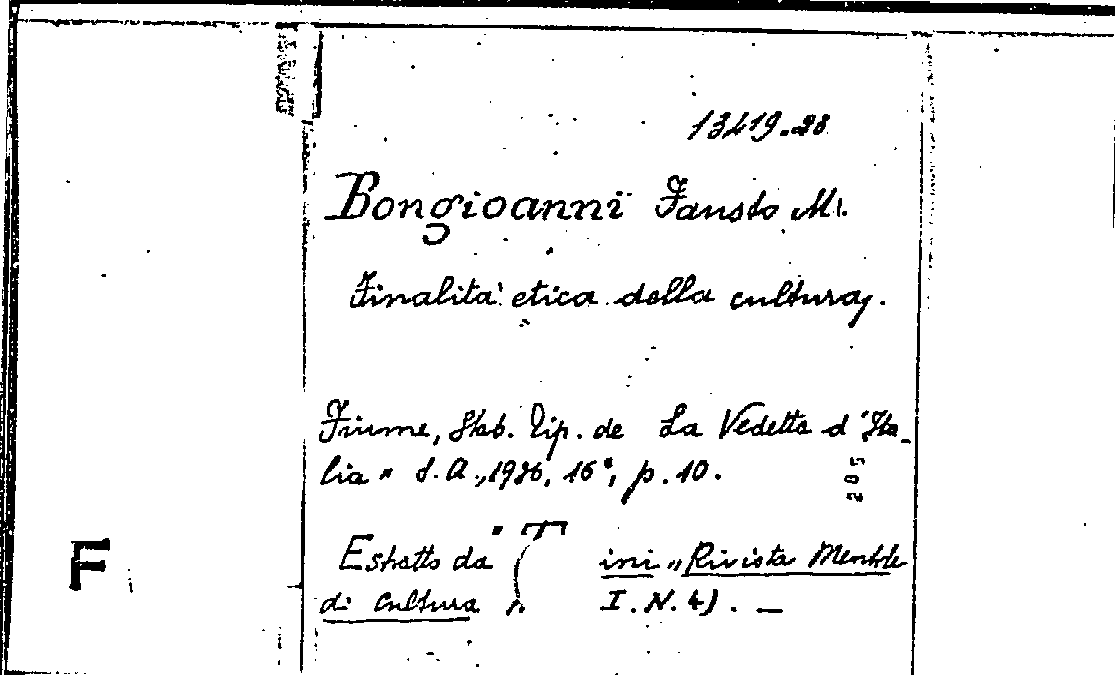 13419.28
Bongioanni Fausto M.
Finalità etica della cultura.
Fiume, Stab. Tip. de La Vedetta d'Ita-
lia" S.A., 1926, 16°, p. 10.
205
Estratto da "T ini" Rivista Mensile
di Cultura I. N. 4). —
F